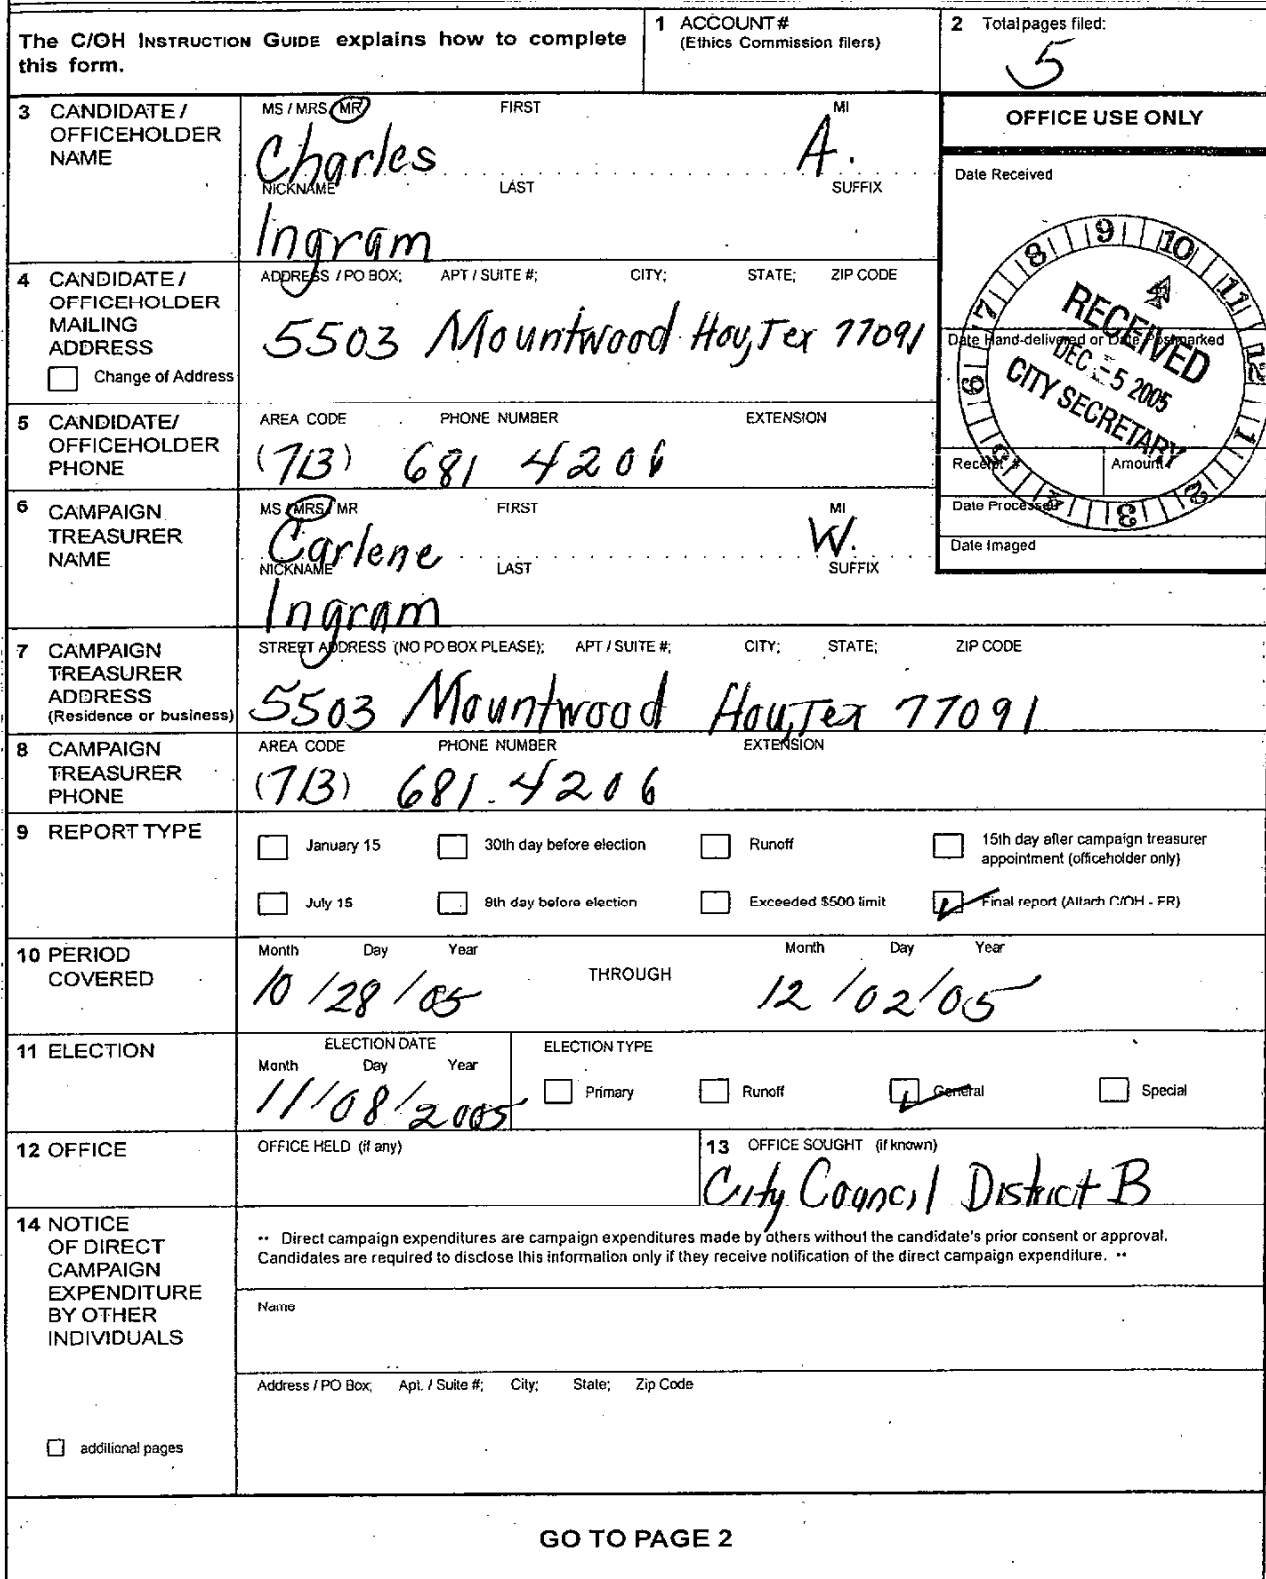 The C/OH INSTRUCTION GUIDE explains how to complete this form.
1 ACCOUNT #
(Ethics Commission filers)
2 Total pages filed:
5
3 CANDIDATE / OFFICEHOLDER NAME
MS / MRS / MR FIRST MI
Charles A.
NICKNAME LAST SUFFIX
Ingram
OFFICE USE ONLY
Date Received
9 10 11 12 1 2 3 4 5 6 7 8
RECEIVED
DEC - 5 2005
CITY SECRETARY
Date Hand-delivered or Date Postmarked
Receipt # Amount
Date Processed
Date Imaged
4 CANDIDATE / OFFICEHOLDER MAILING ADDRESS
Change of Address
ADDRESS / PO BOX; APT / SUITE #; CITY; STATE; ZIP CODE
5503 Mountwood Hou, Tex 77091
5 CANDIDATE/ OFFICEHOLDER PHONE
AREA CODE PHONE NUMBER EXTENSION
(713) 681 4206
6 CAMPAIGN TREASURER NAME
MS / MRS / MR FIRST MI
Carlene W.
NICKNAME LAST SUFFIX
Ingram
7 CAMPAIGN TREASURER ADDRESS
(Residence or business)
STREET ADDRESS (NO PO BOX PLEASE); APT / SUITE #; CITY; STATE; ZIP CODE
5503 Mountwood Hou, Tex 77091
8 CAMPAIGN TREASURER PHONE
AREA CODE PHONE NUMBER EXTENSION
(713) 681-4206
9 REPORT TYPE
January 15 30th day before election Runoff 15th day after campaign treasurer appointment (officeholder only)
July 15 8th day before election Exceeded $500 limit Final report (Attach C/OH - FR)
10 PERIOD COVERED
Month Day Year THROUGH Month Day Year
10 / 28 / 05 12 / 02 / 05
11 ELECTION
ELECTION DATE
Month Day Year
11 / 08 / 2005
ELECTION TYPE
Primary Runoff General Special
12 OFFICE
OFFICE HELD (if any)
13 OFFICE SOUGHT (if known)
City Council District B
14 NOTICE OF DIRECT CAMPAIGN EXPENDITURE BY OTHER INDIVIDUALS
additional pages
•• Direct campaign expenditures are campaign expenditures made by others without the candidate's prior consent or approval.
Candidates are required to disclose this information only if they receive notification of the direct campaign expenditure. ••
Name
Address / PO Box; Apt. / Suite #; City; State; Zip Code
GO TO PAGE 2